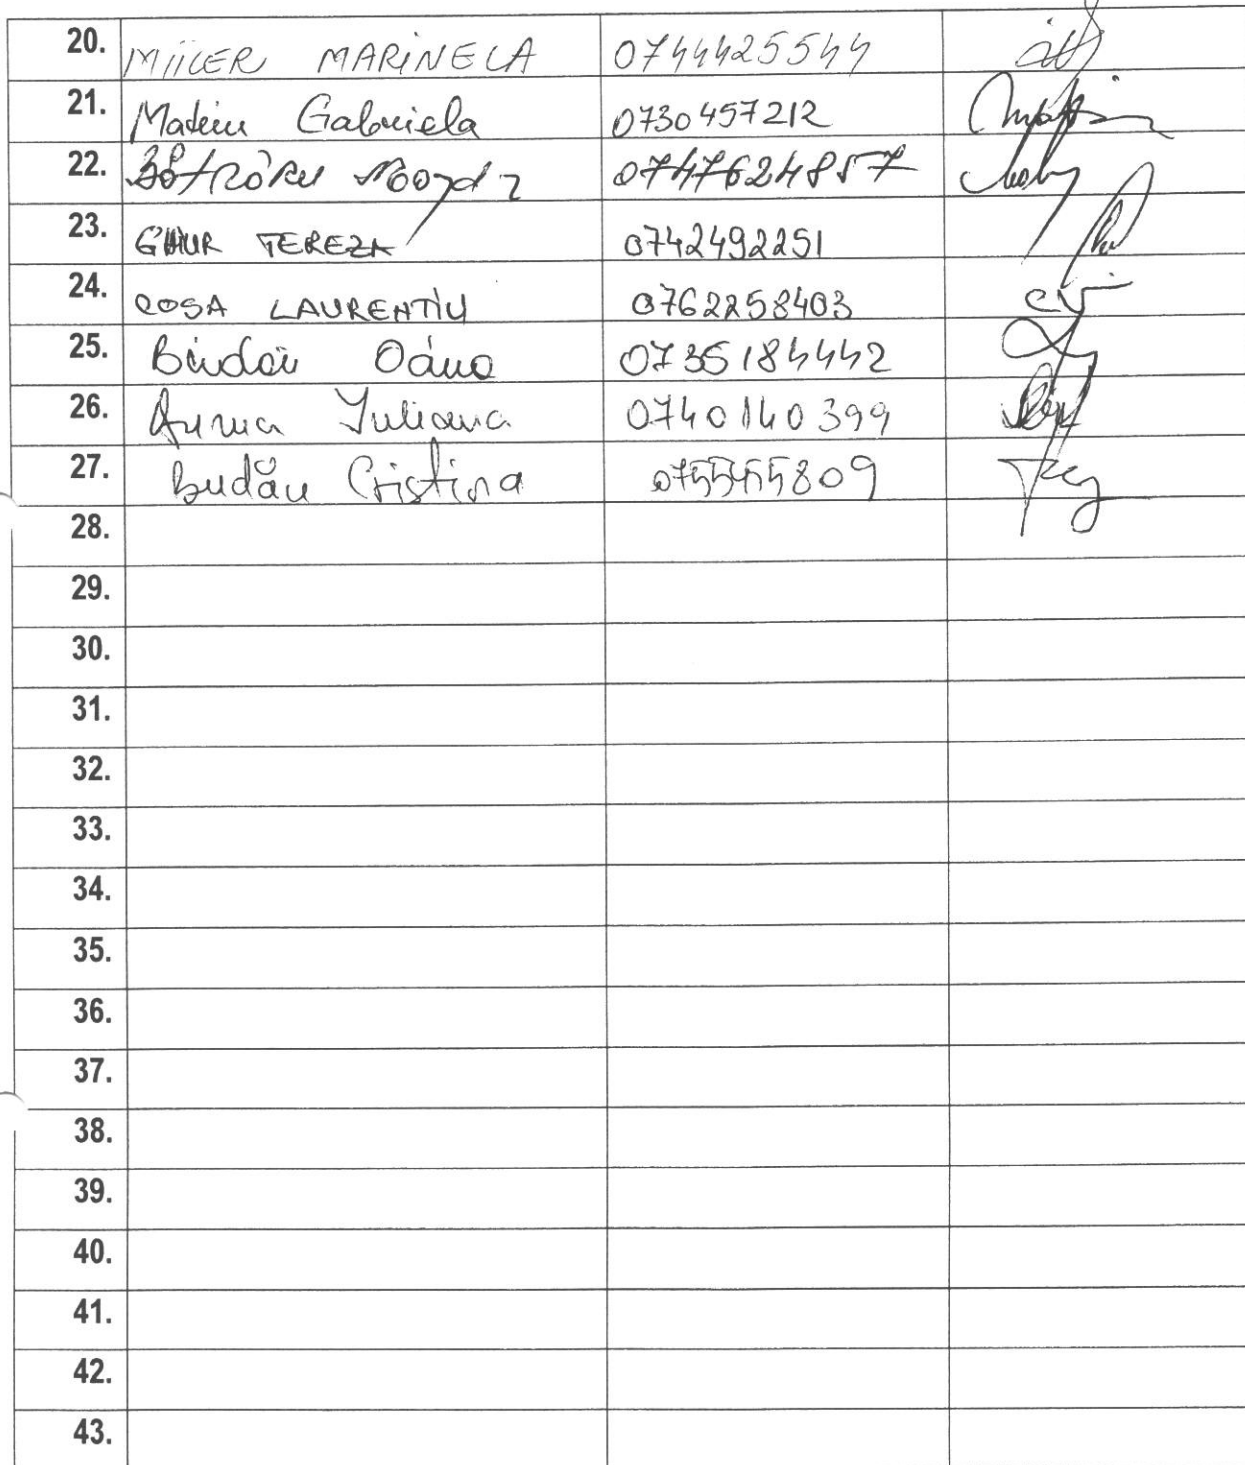 20. MIILER MARINELA 0744425544
21. Mateiu Gabriela 0730457212
22. 0747624857
23. GHIUR TEREZA 0742492251
24. COSA LAURENTIU 0762258403
25. Oana 0735184442
26. Iuliana 0740140399
27. Budău Cristina
28.
29.
30.
31.
32.
33.
34.
35.
36.
37.
38.
39.
40.
41.
42.
43.